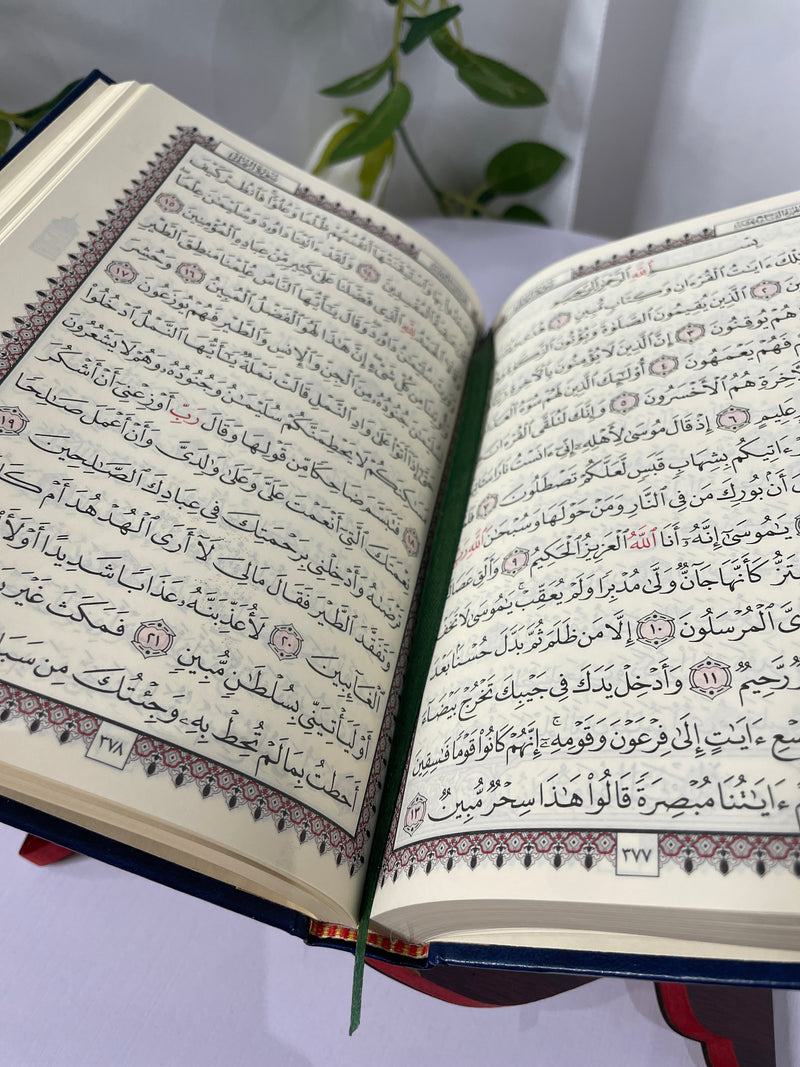 ٱللَّهِ ٱلرَّحْمَٰنِ ٱلرَّحِيمِ
ءَايَٰتُ ٱلْقُرْءَانِ وَكِتَابٍ مُّبِينٍ ١
٢ ٱلَّذِينَ يُقِيمُونَ ٱلصَّلَوٰةَ وَيُؤْتُونَ
هُمْ يُوقِنُونَ ٣ إِنَّ ٱلَّذِينَ لَا يُؤْمِنُونَ بِٱلْأَخِرَةِ
فَهُمْ يَعْمَهُونَ ٤ أُو۟لَٰٓئِكَ ٱلَّذِينَ لَهُمْ سُوٓءُ
هُمُ ٱلْأَخْسَرُونَ ٥ وَإِنَّكَ لَتُلَقَّى ٱلْقُرْءَانَ
عَلِيمٍ ٦ إِذْ قَالَ مُوسَىٰ لِأَهْلِهِۦٓ إِنِّىٓ ءَانَسْتُ نَارًا
ءَاتِيكُم بِشِهَابٍ قَبَسٍ لَّعَلَّكُمْ تَصْطَلُونَ ٧
أَنۢ بُورِكَ مَن فِى ٱلنَّارِ وَمَنْ حَوْلَهَا وَسُبْحَٰنَ ٱللَّهِ رَبِّ
يَٰمُوسَىٰٓ إِنَّهُۥٓ أَنَا ٱللَّهُ ٱلْعَزِيزُ ٱلْحَكِيمُ ٩ وَأَلْقِ عَصَاكَ
تَهْتَزُّ كَأَنَّهَا جَآنٌّ وَلَّىٰ مُدْبِرًا وَلَمْ يُعَقِّبْ يَٰمُوسَىٰ لَا تَخَفْ
ٱلْمُرْسَلُونَ ١٠ إِلَّا مَن ظَلَمَ ثُمَّ بَدَّلَ حُسْنًۢا بَعْدَ
رَّحِيمٌ ١١ وَأَدْخِلْ يَدَكَ فِى جَيْبِكَ تَخْرُجْ بَيْضَآءَ
ءَايَٰتٍ إِلَىٰ فِرْعَوْنَ وَقَوْمِهِۦٓ إِنَّهُمْ كَانُوا۟ قَوْمًا فَٰسِقِينَ
ءَايَٰتُنَا مُبْصِرَةً قَالُوا۟ هَٰذَا سِحْرٌ مُّبِينٌ ١٣
٣٧٧
وَٱسْتَيْقَنَتْهَآ أَنفُسُهُمْ ظُلْمًا وَعُلُوًّا فَٱنظُرْ كَيْفَ
١٤ وَلَقَدْ ءَاتَيْنَا دَاوُۥدَ وَسُلَيْمَٰنَ عِلْمًا
ٱلَّذِى فَضَّلَنَا عَلَىٰ كَثِيرٍ مِّنْ عِبَادِهِ ٱلْمُؤْمِنِينَ ١٥
دَاوُۥدَ وَقَالَ يَٰٓأَيُّهَا ٱلنَّاسُ عُلِّمْنَا مَنطِقَ ٱلطَّيْرِ
مِن كُلِّ شَىْءٍ إِنَّ هَٰذَا لَهُوَ ٱلْفَضْلُ ٱلْمُبِينُ ١٦ وَحُشِرَ
جُنُودُهُۥ مِنَ ٱلْجِنِّ وَٱلْإِنسِ وَٱلطَّيْرِ فَهُمْ يُوزَعُونَ ١٧
إِذَآ أَتَوْا۟ عَلَىٰ وَادِ ٱلنَّمْلِ قَالَتْ نَمْلَةٌ يَٰٓأَيُّهَا ٱلنَّمْلُ ٱدْخُلُوا۟
مَسَٰكِنَكُمْ لَا يَحْطِمَنَّكُمْ سُلَيْمَٰنُ وَجُنُودُهُۥ وَهُمْ لَا يَشْعُرُونَ
١٨ فَتَبَسَّمَ ضَاحِكًا مِّن قَوْلِهَا وَقَالَ رَبِّ أَوْزِعْنِىٓ أَنْ أَشْكُرَ
نِعْمَتَكَ ٱلَّتِىٓ أَنْعَمْتَ عَلَىَّ وَعَلَىٰ وَٰلِدَىَّ وَأَنْ أَعْمَلَ صَٰلِحًا
تَرْضَىٰهُ وَأَدْخِلْنِى بِرَحْمَتِكَ فِى عِبَادِكَ ٱلصَّٰلِحِينَ ١٩
وَتَفَقَّدَ ٱلطَّيْرَ فَقَالَ مَالِىَ لَآ أَرَى ٱلْهُدْهُدَ أَمْ كَانَ
ٱلْغَآئِبِينَ ٢٠ لَأُعَذِّبَنَّهُۥ عَذَابًا شَدِيدًا أَوْ لَأَا۟ذْبَحَنَّهُۥٓ
أَوْ لَيَأْتِيَنِّى بِسُلْطَٰنٍ مُّبِينٍ ٢١ فَمَكَثَ غَيْرَ
أَحَطتُ بِمَا لَمْ تُحِطْ بِهِۦ وَجِئْتُكَ مِن سَبَإٍۭ
٣٧٨